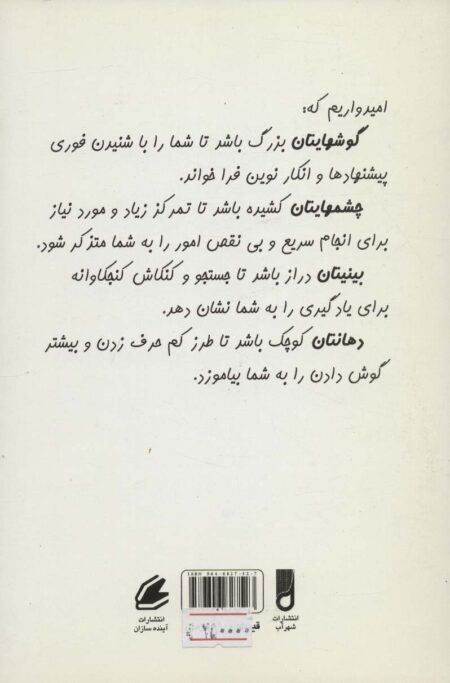 امیدواریم که:
گوشهایتان بزرگ باشد تا شما را با شنیدن فوری
پیشنهادها و انکار نوین فرا خواند.
چشمهایتان کشیده باشد تا تمرکز زیاد و مورد نیاز
برای انجام سریع و بی نقص امور را به شما متذکر شود.
بینیتان دراز باشد تا جستجو و کنکاش کنجکاوانه
برای یادگیری را به شما نشان دهد.
دهانتان کوچک باشد تا طرز کم حرف زدن و بیشتر
گوش دادن را به شما بیاموزد.
انتشارات
شهرآب
انتشارات
آینده سازان